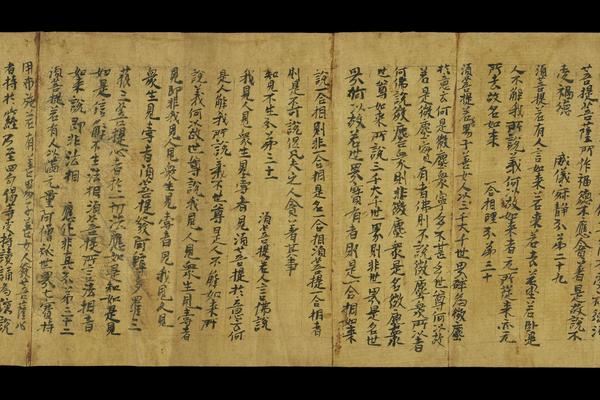 菩提菩薩所作福德不應貪著是故說不
受福德 威儀寂靜分第二十九
須菩提若有人言如來若來若去若坐若臥是
人不解我所說義何以故如來者无所從來亦无
所去故名如來 一合相理分第三十
須菩提若善男子善女人以三千大千世界碎為微塵
於意云何是微塵眾寧為多不甚多世尊何以故
若是微塵眾實有者佛則不說微塵眾所以者
何佛說微塵眾則非微塵眾是名微塵眾
世尊如來所說三千大千世界則非世界是名世
界何以故若世界實有者則是一合相如來
說一合相則非一合相是名一合相須菩提一合相者
則是不可說但凡夫之人貪著其事
知見不生分第三十一 須菩提若人言佛說
我見人見眾生見壽者見須菩提於意云何
是人解我所說義不世尊是人不解如來所
說義何以故世尊說我見人見眾生見壽者
見即非我見人見眾生見壽者見我見人見
眾生見壽者須菩提發阿耨多羅三
藐三菩提心者於一切法應如是知如是見
如是信解不生法相須菩提所言法相者
如來說即非法相 應化非真分第三十二
須菩提若有人以滿无量阿僧祇世界七寶持
用布施若有善男子善女人發菩薩心
者持於此經乃至四句偈等受持讀誦為人演說